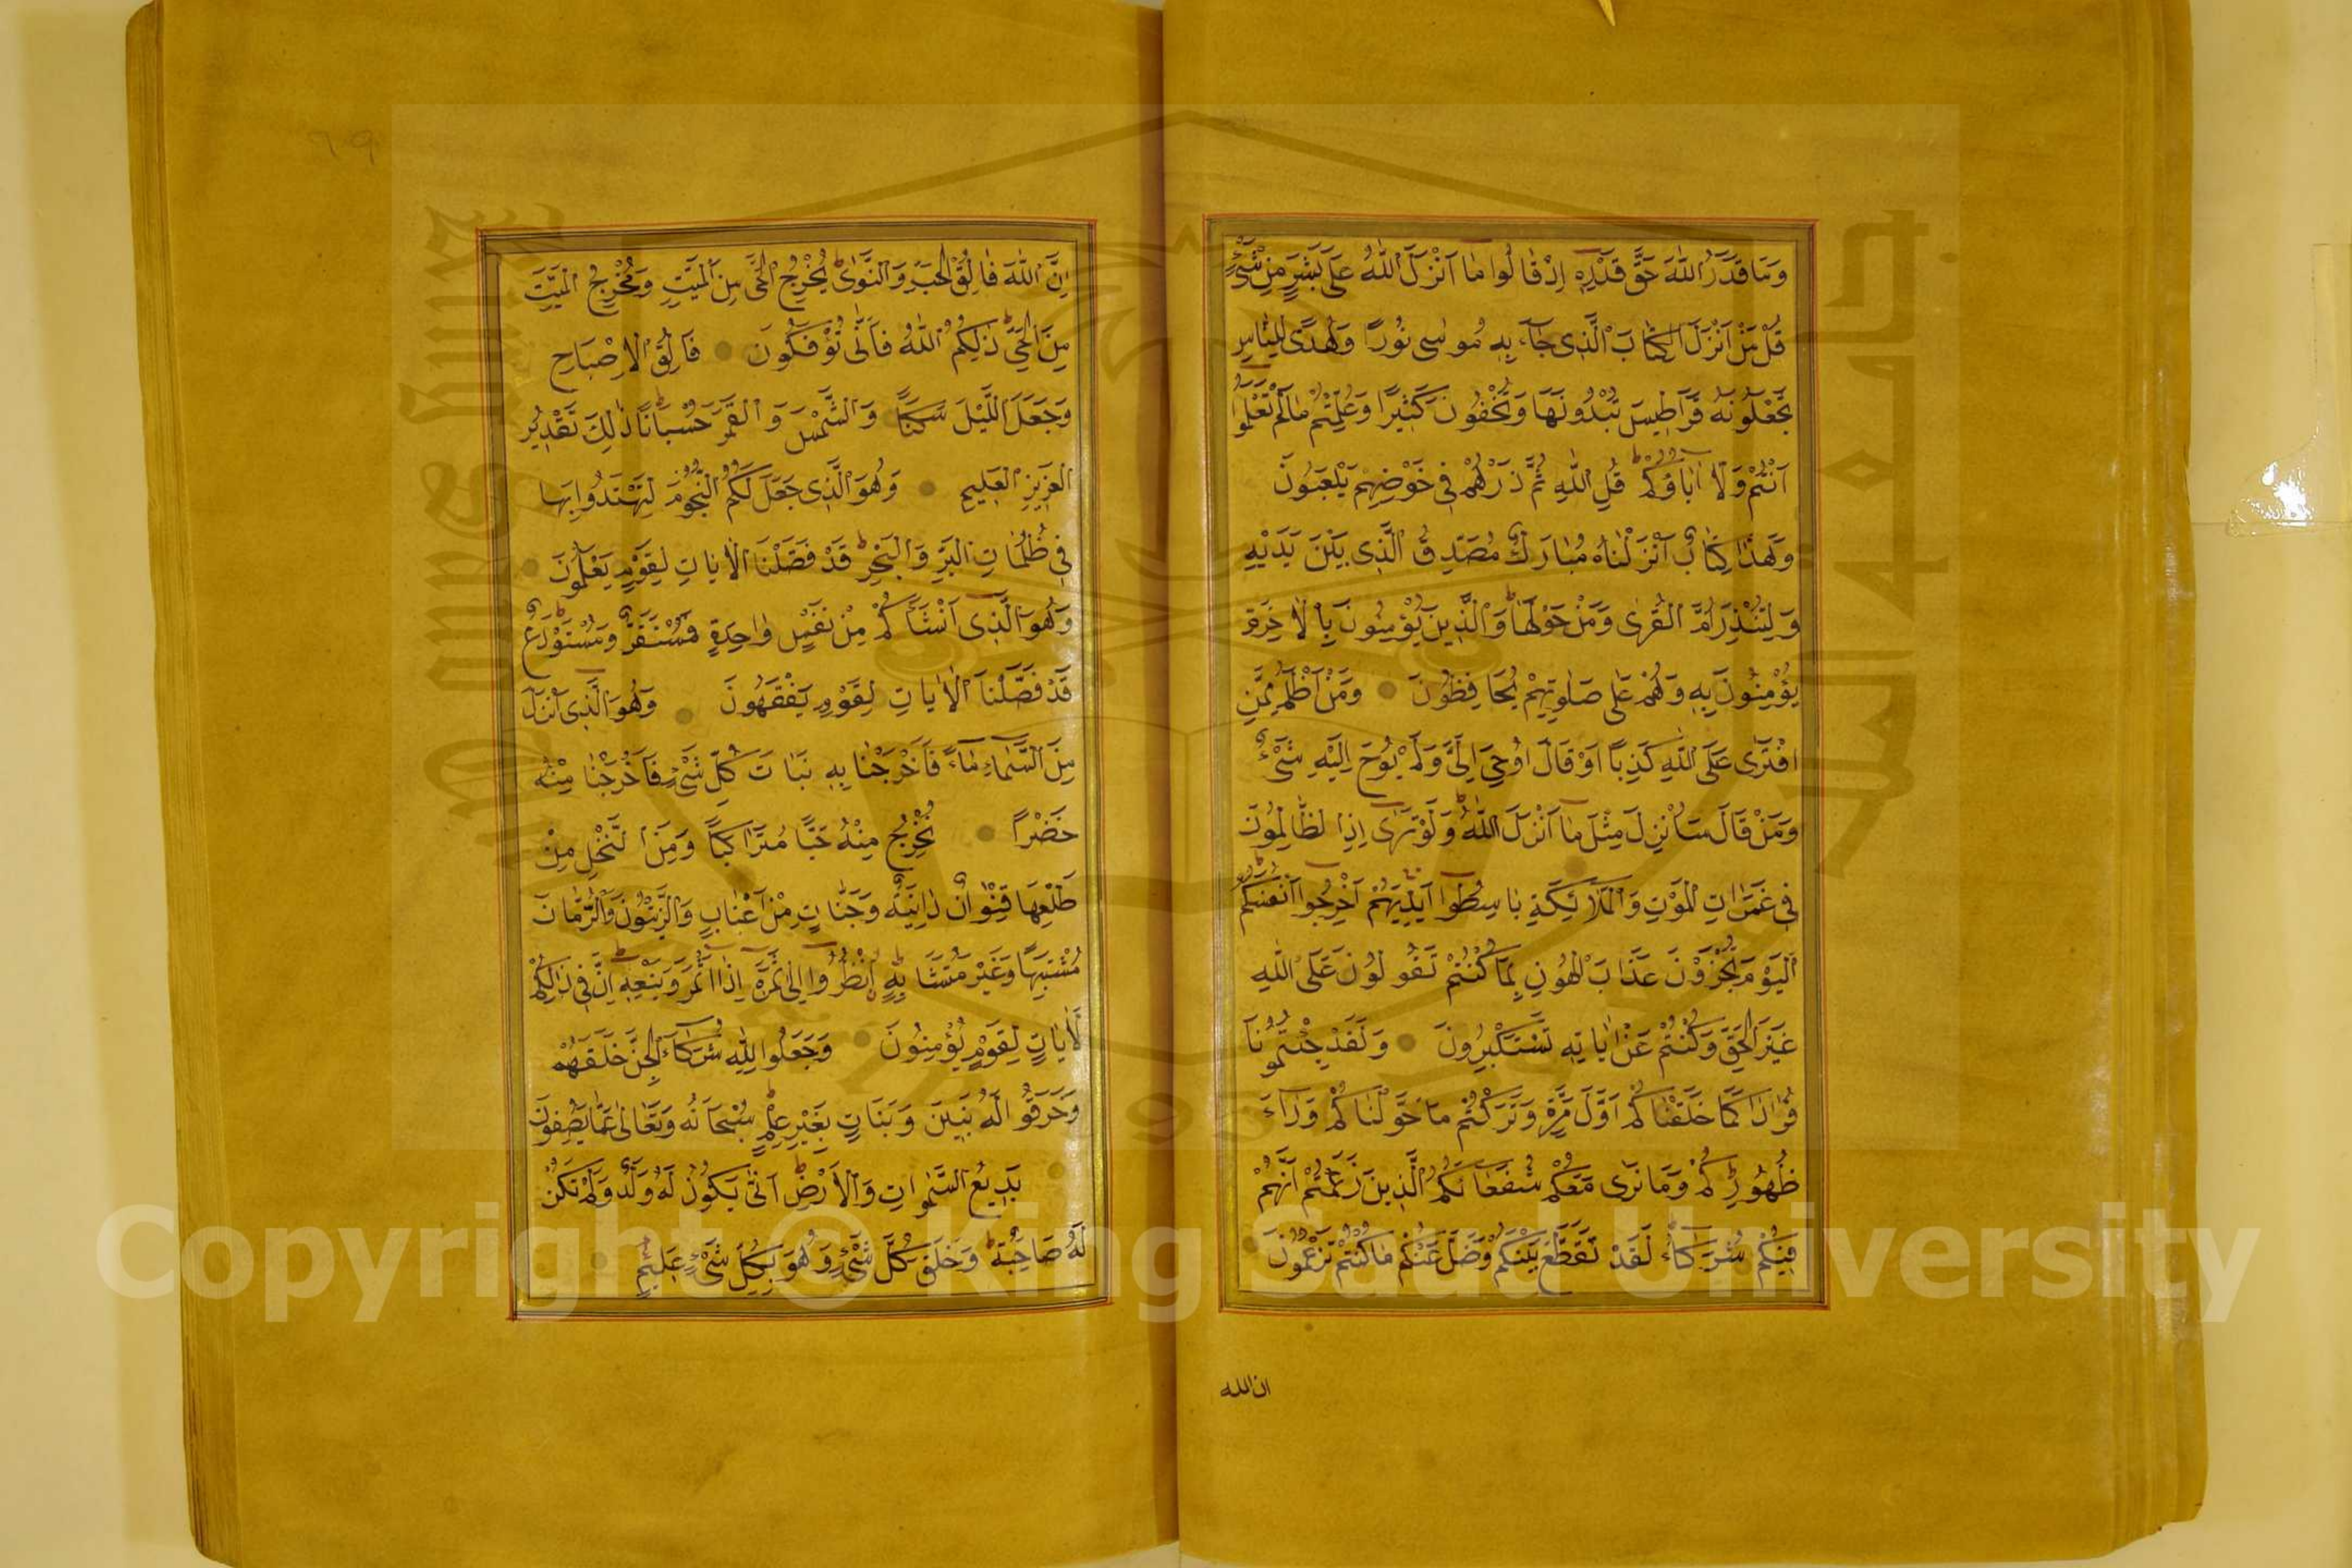 وَمَا قَدَرُ اللّٰهَ حَقَّ قَدْرِهِ اِذْ قَالُوا مَا اَنْزَلَ اللّٰهُ عَلٰى بَشَرٍ مِنْ شَىْءٍ
قُلْ مَنْ اَنْزَلَ الْكِتَابَ الَّذِى جَاءَ بِهِ مُوسٰى نُورًا وَهُدًى لِلنَّاسِ
تَجْعَلُونَهُ قَرَاطِيسَ تُبْدُونَهَا وَتُخْفُونَ كَثِيرًا وَعُلِّمْتُمْ مَالَمْ تَعْلَمُوا
اَنْتُمْ وَلَا اٰبَاؤُكُمْ قُلِ اللّٰهِ ثُمَّ ذَرْهُمْ فِى خَوْضِهِمْ يَلْعَبُونَ
وَهٰذَا كِتَابٌ اَنْزَلْنَاهُ مُبَارَكٌ مُصَدِّقُ الَّذِى بَيْنَ يَدَيْهِ
وَلِتُنْذِرَ اُمَّ الْقُرٰى وَمَنْ حَوْلَهَا وَالَّذِينَ يُؤْمِنُونَ بِالْاٰخِرَةِ
يُؤْمِنُونَ بِهِ وَهُمْ عَلٰى صَلٰوتِهِمْ يُحَافِظُونَ وَمَنْ اَظْلَمُ مِمَّنِ
افْتَرٰى عَلَى اللّٰهِ كَذِبًا اَوْ قَالَ اُوحِىَ اِلَىَّ وَلَمْ يُوحَ اِلَيْهِ شَىْءٌ
وَمَنْ قَالَ سَاُنْزِلُ مِثْلَ مَا اَنْزَلَ اللّٰهُ وَلَوْ تَرٰى اِذِ الظَّالِمُونَ
فِى غَمَرَاتِ الْمَوْتِ وَالْمَلَائِكَةِ بَاسِطُوا اَيْدِيهِمْ اَخْرِجُوا اَنْفُسَكُمْ
اَلْيَوْمَ تُجْزَوْنَ عَذَابَ الْهُونِ بِمَا كُنْتُمْ تَقُولُونَ عَلَى اللّٰهِ
غَيْرَ الْحَقِّ وَكُنْتُمْ عَنْ اٰيَاتِهِ تَسْتَكْبِرُونَ وَلَقَدْ جِئْتُمُونَا
فُرَادَا كَمَا خَلَقْنَاكُمْ اَوَّلَ مَرَّةٍ وَتَرَكْتُمْ مَا خَوَّلْنَاكُمْ وَرَاءَ
ظُهُورِكُمْ وَمَا نَرٰى مَعَكُمْ شُفَعَاءَكُمُ الَّذِينَ زَعَمْتُمْ اَنَّهُمْ
فِيكُمْ شُرَكَاءُ لَقَدْ تَقَطَّعَ بَيْنَكُمْ وَضَلَّ عَنْكُمْ مَا كُنْتُمْ تَزْعُمُونَ
ان الله
٦٩
اِنَّ اللّٰهَ فَالِقُ الْحَبِّ وَالنَّوٰى يُخْرِجُ الْحَىَّ مِنَ الْمَيِّتِ وَمُخْرِجُ الْمَيِّتِ
مِنَ الْحَىِّ ذٰلِكُمُ اللّٰهُ فَاَنّٰى تُؤْفَكُونَ فَالِقُ الْاِصْبَاحِ
وَجَعَلَ اللَّيْلَ سَكَنًا وَالشَّمْسَ وَالْقَمَرَ حُسْبَانًا ذٰلِكَ تَقْدِيرُ
الْعَزِيزِ الْعَلِيمِ وَهُوَ الَّذِى جَعَلَ لَكُمُ النُّجُومَ لِتَهْتَدُوا بِهَا
فِى ظُلُمَاتِ الْبَرِّ وَالْبَحْرِ قَدْ فَصَّلْنَا الْاٰيَاتِ لِقَوْمٍ يَعْلَمُونَ
وَهُوَ الَّذِى اَنْشَاَكُمْ مِنْ نَفْسٍ وَاحِدَةٍ فَمُسْتَقَرٌّ وَمُسْتَوْدَعٌ
قَدْ فَصَّلْنَا الْاٰيَاتِ لِقَوْمٍ يَفْقَهُونَ وَهُوَ الَّذِى اَنْزَلَ
مِنَ السَّمَاءِ مَاءً فَاَخْرَجْنَا بِهِ نَبَاتَ كُلِّ شَىْءٍ فَاَخْرَجْنَا مِنْهُ
خَضْرًا نُخْرِجُ مِنْهُ حَبًّا مُتَرَاكِبًا وَمِنَ النَّخْلِ مِنْ
طَلْعِهَا قِنْوَانٌ دَانِيَةٌ وَجَنَّاتٍ مِنْ اَعْنَابٍ وَالزَّيْتُونَ وَالرُّمَّانَ
مُشْتَبِهًا وَغَيْرَ مُتَشَابِهٍ اُنْظُرُوا اِلٰى ثَمَرِهِ اِذَا اَثْمَرَ وَيَنْعِهِ اِنَّ فِى ذٰلِكُمْ
لَاٰيَاتٍ لِقَوْمٍ يُؤْمِنُونَ وَجَعَلُوا لِلّٰهِ شُرَكَاءَ الْجِنَّ خَلَقَهُمْ
وَخَرَقُو الَهُ بَنِينَ وَبَنَاتٍ بِغَيْرِ عِلْمٍ سُبْحَانَهُ وَتَعَالٰى عَمَّا يَصِفُونَ
بَدِيعُ السَّمٰوَاتِ وَالْاَرْضِ اَنّٰى يَكُونُ لَهُ وَلَدٌ وَلَمْ تَكُنْ
لَهُ صَاحِبَةٌ وَخَلَقَ كُلَّ شَىْءٍ وَهُوَ بِكُلِّ شَىْءٍ عَلِيمٌ
Copyright © King Saud University